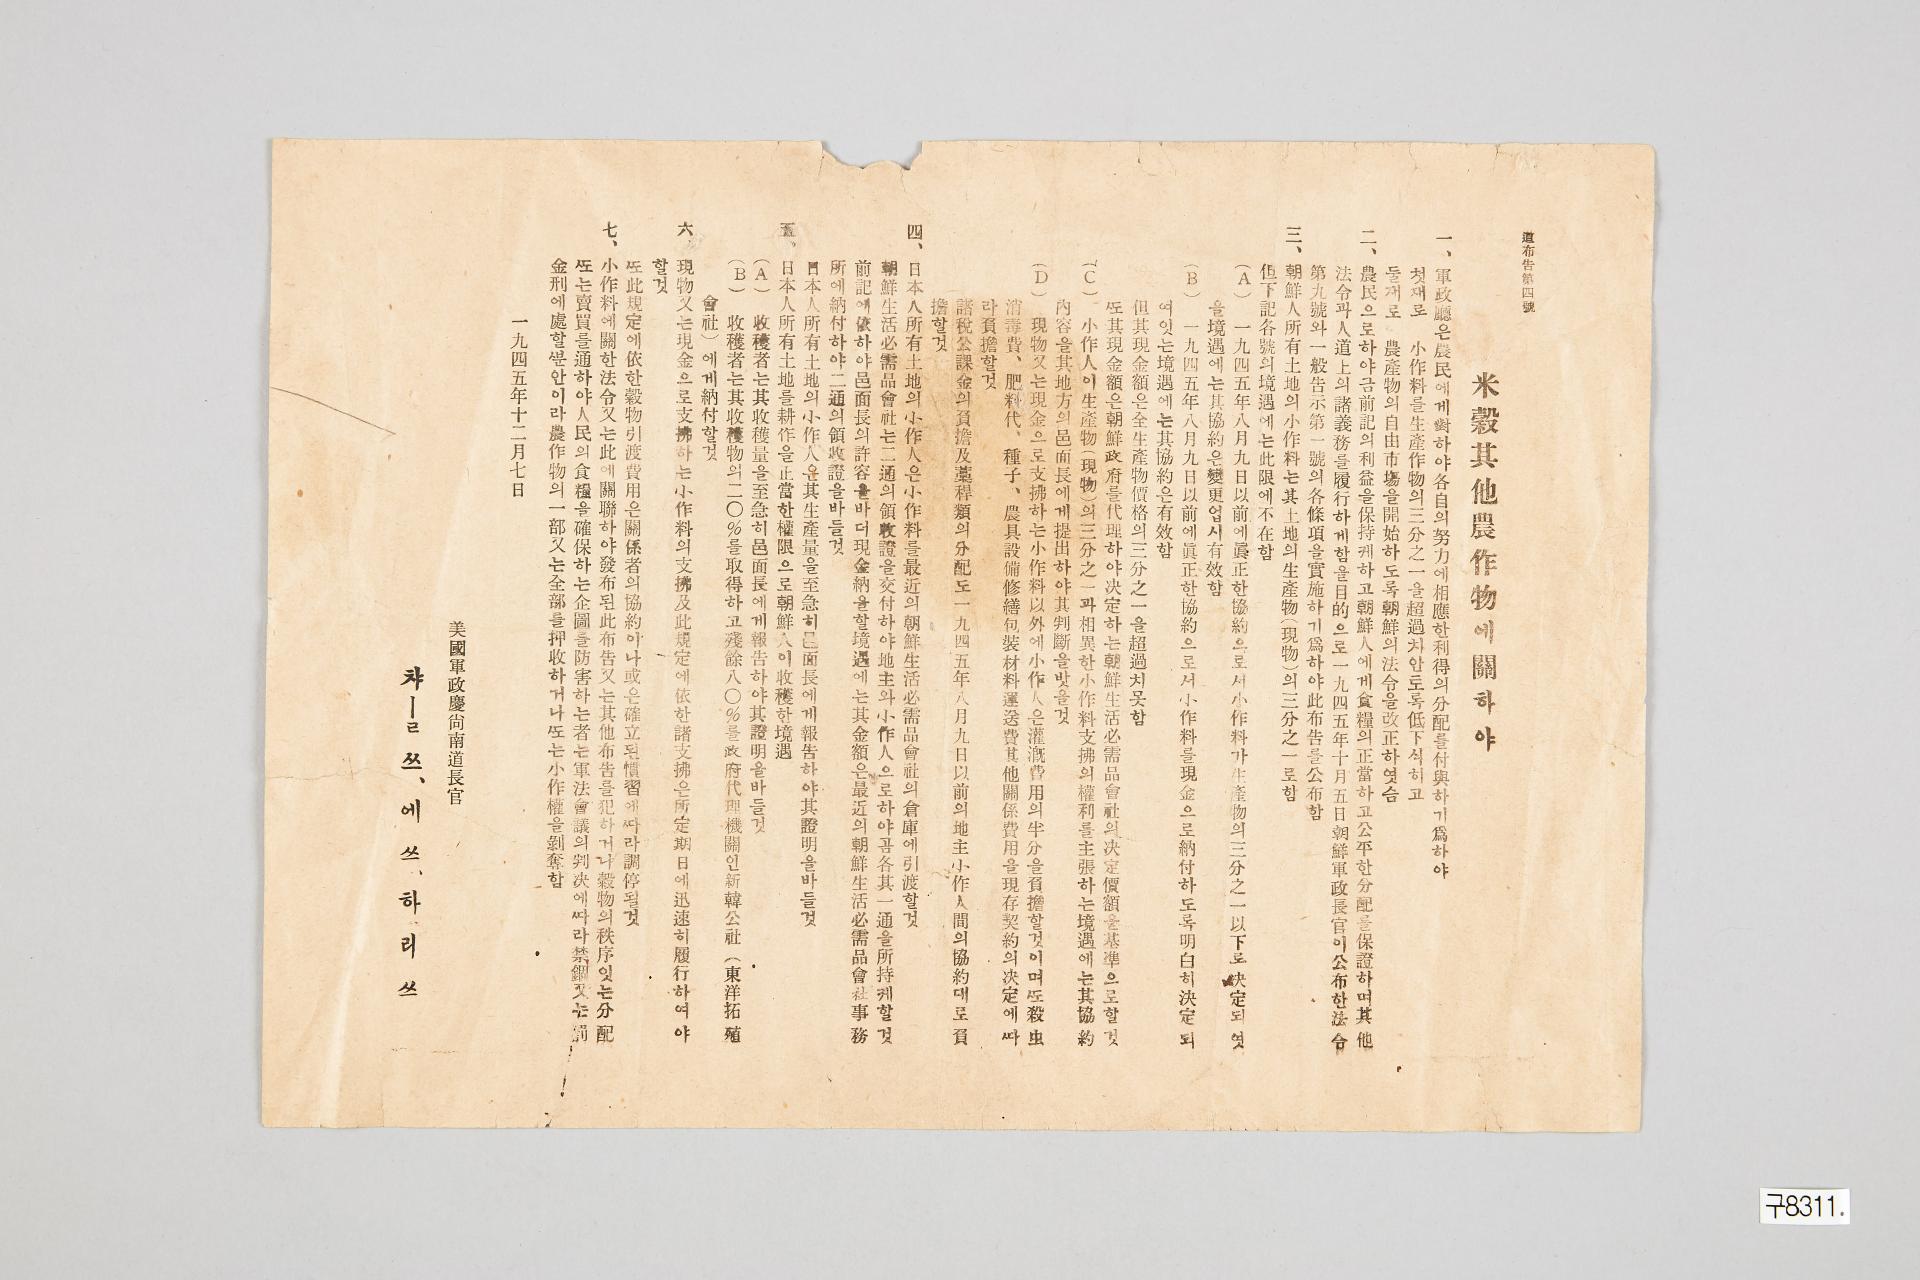 道布告第四號
米穀其他農作物에關하야
一、軍政廳은農民에게對하야各自의努力에相應한利得의分配를付與하기爲하야
첫재로 小作料를生產作物의三分之一을超過치안토록低下식히고
둘재로 農產物의自由市場을開始하도록朝鮮의法令을改正하엿슴
二、農民으로하야금前記의利益을保持케하고朝鮮人에게食糧의正當하고公平한分配를保證하며其他
法令과人道上의諸義務를履行하게함을目的으로一九四五年十月五日朝鮮軍政長官이公布한法令
第九號와一般告示第一號의各條項을實施하기爲하야此布告를公布함
三、朝鮮人所有土地의小作料는其土地의生產物(現物)의三分之一로함
但下記各號의境遇에는此限에不在함
(A) 一九四五年八月九日以前에眞正한協約으로서小作料가生產物의三分之一以下로決定되엿
을境遇에는其協約은變更업시有效함
(B) 一九四五年八月九日以前에眞正한協約으로서小作料를現金으로納付하도록明白히決定되
여잇는境遇에는其協約은有效함
但其現金額은全生產物價格의三分之一을超過치못함
또其現金額은朝鮮政府를代理하야決定하는朝鮮生活必需品會社의決定價額을基準으로할것
(C) 小作人이生產物(現物)의三分之一과相異한小作料支拂의權利를主張하는境遇에는其協約
內容을其地方의邑面長에게提出하야其判斷을밧을것
(D) 現物又는現金으로支拂하는小作料以外에小作人은灌漑費用의半分을負擔할것이며또殺虫
消毒費、肥料代、種子、農具設備修繕包裝材料運送費其他關係費用을現存契約의決定에따
라負擔할것
諸稅公課金의負擔及藁稈類의分配도一九四五年八月九日以前의地主小作人間의協約대로負
擔할것
四、日本人所有土地의小作人은小作料를最近의朝鮮生活必需品會社의倉庫에引渡할것
朝鮮生活必需品會社는二通의領收證을交付하야地主와小作人으로하야곰各其一通을所持케할것
前記에依하야邑面長의許容을바더現金納을할境遇에는其金額은最近의朝鮮生活必需品會社事務
所에納付하야二通의領收證을바들것
日本人所有土地의小作人은其生產量을至急히邑面長에게報告하야其證明을바들것
五、日本人所有土地를耕作을正當한權限으로朝鮮人이收穫한境遇
(A) 收穫者는其收穫量을至急히邑面長에게報告하야其證明을바들것
(B) 收穫者는其收穫物의二〇%를取得하고殘餘八〇%를政府代理機關인新韓公社(東洋拓殖
會社)에게納付할것
六、現物又는現金으로支拂하는小作料의支拂及此規定에依한諸支拂은所定期日에迅速히履行하여야
할것
또此規定에依한穀物引渡費用은關係者의協約이나或은確立된慣習에따라調停될것
七、小作料에關한法令又는此에關聯하야發布된此布告又는其他布告를犯하거나穀物의秩序잇는分配
또는賣買를通하야人民의食糧을確保하는企圖를防害하는者는軍法會議의判決에따라禁錮又는罰
金刑에處할뿐안이라農作物의一部又는全部를押收하거나또는小作權을剝奪함
一九四五年十二月七日
美國軍政慶尙南道長官
챠ー을쓰、에쓰、하리쓰
구8311.